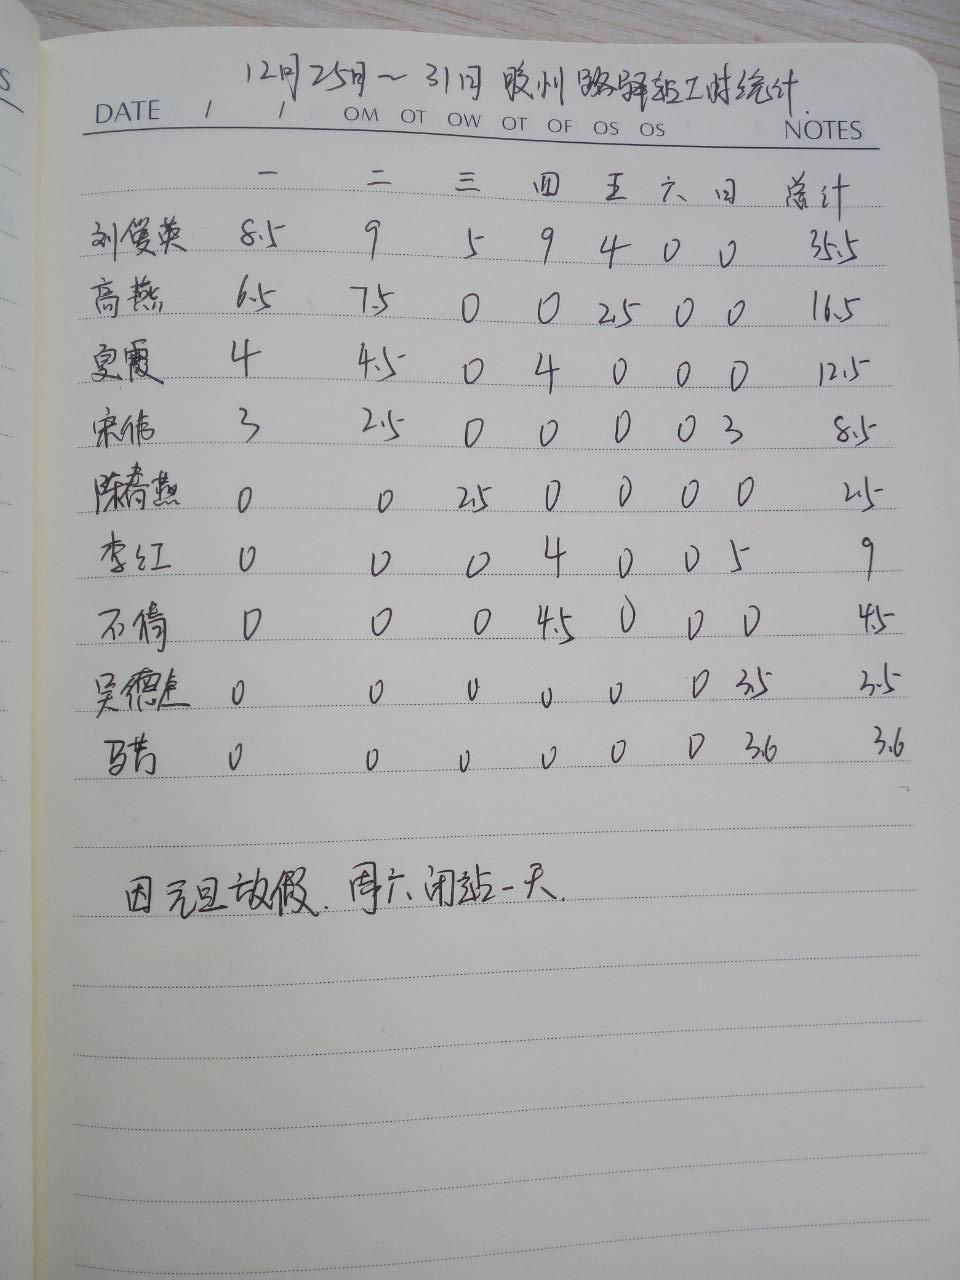 S
12月25日~31日 胶州路驿站工时统计.
DATE / / OM OT OW OT OF OS OS NOTES
一 二 三 四 五 六 日 总计
刘俊英 8.5 9 5 9 4 0 0 35.5
高燕 6.5 7.5 0 0 2.5 0 0 16.5
夏霞 4 4.5 0 4 0 0 0 12.5
宋伟 3 2.5 0 0 0 0 3 8.5
陈春燕 0 0 2.5 0 0 0 0 2.5
李红 0 0 0 4 0 0 5 9
不倚 0 0 0 4.5 0 0 0 4.5
吴德 0 0 0 0 0 0 3.5 3.5
马 0 0 0 0 0 0 3.6 3.6
因元旦放假.周六闭站一天.